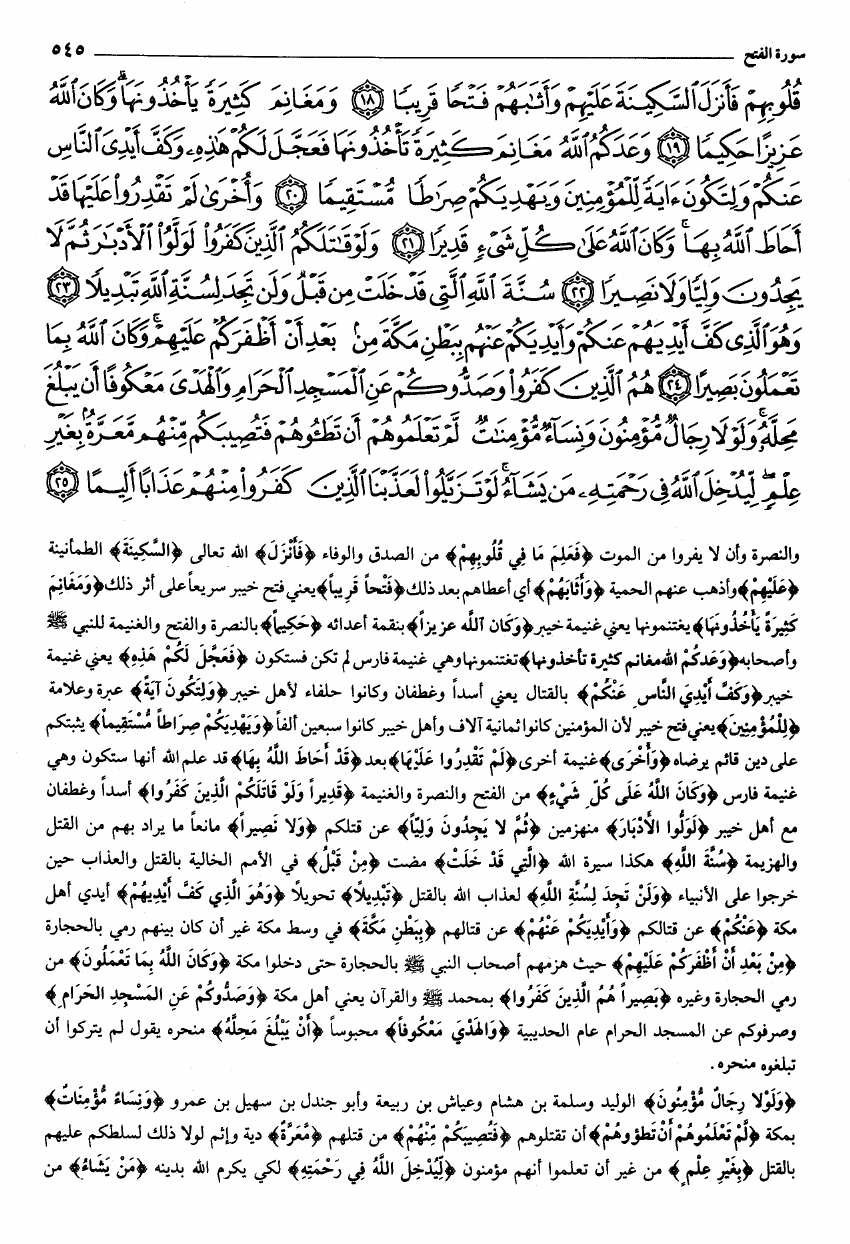 سورة الفتح ٥٤٥
قُلُوبِهِمْ فَأَنزَلَ ٱلسَّكِينَةَ عَلَيْهِمْ وَأَثَـٰبَهُمْ فَتْحًا قَرِيبًا ﴿١٨﴾ وَمَغَانِمَ كَثِيرَةً يَأْخُذُونَهَا ۗ وَكَانَ ٱللَّهُ
عَزِيزًا حَكِيمًا ﴿١٩﴾ وَعَدَكُمُ ٱللَّهُ مَغَانِمَ كَثِيرَةً تَأْخُذُونَهَا فَعَجَّلَ لَكُمْ هَـٰذِهِۦ وَكَفَّ أَيْدِىَ ٱلنَّاسِ
عَنكُمْ وَلِتَكُونَ ءَايَةً لِّلْمُؤْمِنِينَ وَيَهْدِيَكُمْ صِرَٰطًا مُّسْتَقِيمًا ﴿٢٠﴾ وَأُخْرَىٰ لَمْ تَقْدِرُوا۟ عَلَيْهَا قَدْ
أَحَاطَ ٱللَّهُ بِهَا ۚ وَكَانَ ٱللَّهُ عَلَىٰ كُلِّ شَىْءٍ قَدِيرًا ﴿٢١﴾ وَلَوْ قَـٰتَلَكُمُ ٱلَّذِينَ كَفَرُوا۟ لَوَلَّوُا۟ ٱلْأَدْبَـٰرَ ثُمَّ لَا
يَجِدُونَ وَلِيًّا وَلَا نَصِيرًا ﴿٢٢﴾ سُنَّةَ ٱللَّهِ ٱلَّتِى قَدْ خَلَتْ مِن قَبْلُ وَلَن تَجِدَ لِسُنَّةِ ٱللَّهِ تَبْدِيلًا ﴿٢٣﴾
وَهُوَ ٱلَّذِى كَفَّ أَيْدِيَهُمْ عَنكُمْ وَأَيْدِيَكُمْ عَنْهُم بِبَطْنِ مَكَّةَ مِنۢ بَعْدِ أَنْ أَظْفَرَكُمْ عَلَيْهِمْ ۚ وَكَانَ ٱللَّهُ بِمَا
تَعْمَلُونَ بَصِيرًا ﴿٢٤﴾ هُمُ ٱلَّذِينَ كَفَرُوا۟ وَصَدُّوكُمْ عَنِ ٱلْمَسْجِدِ ٱلْحَرَامِ وَٱلْهَدْىَ مَعْكُوفًا أَن يَبْلُغَ
مَحِلَّهُۥ ۚ وَلَوْلَا رِجَالٌ مُّؤْمِنُونَ وَنِسَآءٌ مُّؤْمِنَـٰتٌ لَّمْ تَعْلَمُوهُمْ أَن تَطَـُٔوهُمْ فَتُصِيبَكُم مِّنْهُم مَّعَرَّةٌۢ بِغَيْرِ
عِلْمٍ ۖ لِّيُدْخِلَ ٱللَّهُ فِى رَحْمَتِهِۦ مَن يَشَآءُ ۚ لَوْ تَزَيَّلُوا۟ لَعَذَّبْنَا ٱلَّذِينَ كَفَرُوا۟ مِنْهُمْ عَذَابًا أَلِيمًا ﴿٢٥﴾
والنصرة وأن لا يفروا من الموت ﴿فَعَلِمَ مَا فِي قُلُوبِهِمْ﴾ من الصدق والوفاء ﴿فَأَنْزَلَ﴾ الله تعالى ﴿السَّكِينَةَ﴾ الطمأنينة
﴿عَلَيْهِمْ﴾ وأذهب عنهم الحمية ﴿وَأَثَابَهُمْ﴾ أي أعطاهم بعد ذلك ﴿فَتْحاً قَرِيباً﴾ يعني فتح خيبر سريعاً على أثر ذلك ﴿وَمَغَانِمَ
كَثِيرَةً يَأْخُذُونَهَا﴾ يغتنمونها يعني غنيمة خيبر ﴿وَكَانَ اللَّه عزيزاً﴾ بنقمة أعدائه ﴿حَكِيماً﴾ بالنصرة والفتح والغنيمة للنبي ﷺ
وأصحابه ﴿وَعَدَكُمُ الله مغانم كثيرة تأخذونها﴾ تغتنمونها وهي غنيمة فارس لم تكن فستكون ﴿فَعَجَّلَ لَكُمْ هَذِهِ﴾ يعني غنيمة
خيبر ﴿وَكَفَّ أَيْدِيَ النَّاسِ عَنْكُمْ﴾ بالقتال يعني أسداً وغطفان وكانوا حلفاء لأهل خيبر ﴿وَلِتَكُونَ آيَةً﴾ عبرة وعلامة
﴿لِلْمُؤْمِنِينَ﴾ يعني فتح خيبر لأن المؤمنين كانوا ثمانية آلاف وأهل خيبر كانوا سبعين ألفاً ﴿وَيَهْدِيَكُمْ صِرَاطاً مُسْتَقِيماً﴾ يثبتكم
على دين قائم يرضاه ﴿وَأُخْرَى﴾ غنيمة أخرى ﴿لَمْ تَقْدِرُوا عَلَيْهَا﴾ بعد ﴿قَدْ أَحَاطَ اللَّهُ بِهَا﴾ قد علم الله أنها ستكون وهي
غنيمة فارس ﴿وَكَانَ اللَّهُ عَلَى كُلِّ شَيْءٍ﴾ من الفتح والنصرة والغنيمة ﴿قَدِيراً وَلَوْ قَاتَلَكُمْ الَّذِينَ كَفَرُوا﴾ أسداً وغطفان
مع أهل خيبر ﴿لَوَلُّوا الأَدْبَارَ﴾ منهزمين ﴿ثُمَّ لا يَجِدُونَ وَلِيّاً﴾ عن قتلكم ﴿وَلا نَصِيراً﴾ مانعاً ما يراد بهم من القتل
والهزيمة ﴿سُنَّةَ اللَّهِ﴾ هكذا سيرة الله ﴿الَّتِي قَدْ خَلَتْ﴾ مضت ﴿مِنْ قَبْلُ﴾ في الأمم الخالية بالقتل والعذاب حين
خرجوا على الأنبياء ﴿وَلَنْ تَجِدَ لِسُنَّةِ اللَّهِ﴾ لعذاب الله بالقتل ﴿تَبْدِيلاً﴾ تحويلاً ﴿وَهُوَ الَّذِي كَفَّ أَيْدِيهُمْ﴾ أيدي أهل
مكة ﴿عَنْكُمْ﴾ عن قتالكم ﴿وَأَيْدِيَكُمْ عَنْهُمْ﴾ عن قتالهم ﴿بِبَطْنِ مَكَّةَ﴾ في وسط مكة غير أن كان بينهم رمي بالحجارة
﴿مِنْ بَعْدِ أَنْ أَظْفَرَكُمْ عَلَيْهِمْ﴾ حيث هزمهم أصحاب النبي ﷺ بالحجارة حتى دخلوا مكة ﴿وَكَانَ اللَّهُ بِمَا تَعْمَلُونَ﴾ من
رمي الحجارة وغيره ﴿بَصِيراً هُمُ الَّذِينَ كَفَرُوا﴾ بمحمد ﷺ والقرآن يعني أهل مكة ﴿وَصَدُّوكُمْ عَنِ المَسْجِدِ الحَرَامِ﴾
وصرفوكم عن المسجد الحرام عام الحديبية ﴿وَالهَدْيَ مَعْكُوفاً﴾ محبوساً ﴿أَنْ يَبْلُغَ مَحِلَّهُ﴾ منحره يقول لم يتركوا أن
تبلغوه منحره.
﴿وَلَوْلا رِجَالٌ مُؤْمِنُونَ﴾ الوليد وسلمة بن هشام وعياش بن ربيعة وأبو جندل بن سهيل بن عمرو ﴿وَنِسَاءٌ مُؤْمِنَاتٌ﴾
بمكة ﴿لَمْ تَعْلَمُوهُمْ أَنْ تَطؤوهُمْ﴾ أن تقتلوهم ﴿فَتُصِيبَكُمْ مِنْهُمْ﴾ من قتلهم ﴿مَعَرَّةٌ﴾ دية وإثم لولا ذلك لسلطكم عليهم
بالقتل ﴿بِغَيْرِ عِلْمٍ﴾ من غير أن تعلموا أنهم مؤمنون ﴿لِيُدْخِلَ اللَّهُ فِي رَحْمَتِهِ﴾ لكي يكرم الله بدينه ﴿مَنْ يَشَاءُ﴾ من